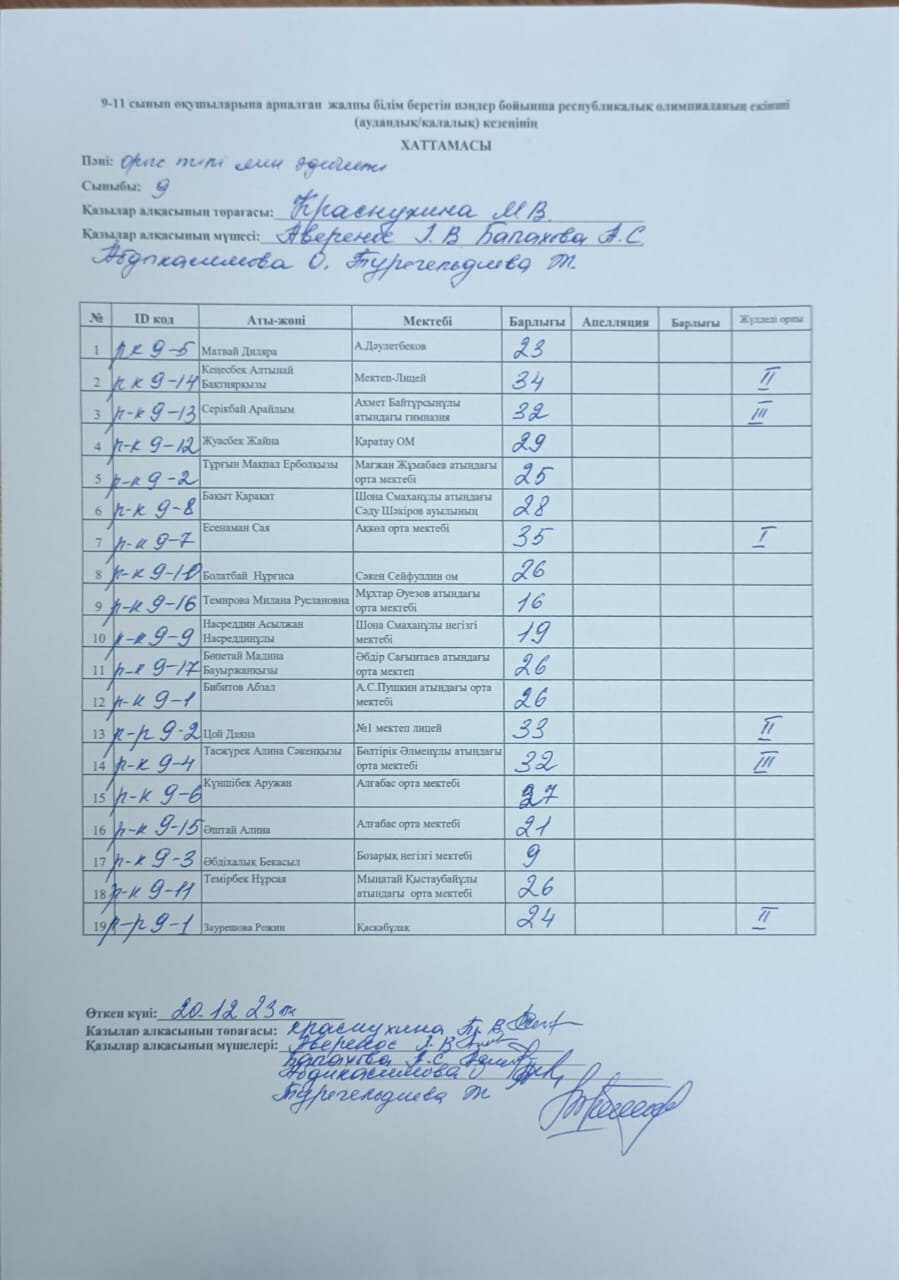 9-11 сынып оқушыларына арналған жалпы білім беретін пәндер бойынша республикалық олимпиаданың екінші
(аудандық/қалалық) кезеңінің
ХАТТАМАСЫ
Пәні: Орыс тілі мен әдебиеті
Сыныбы: 9
Қазылар алқасының төрағасы: Краснухина М В.
Қазылар алқасының мүшесі: Аверенос І. В Бапахова А. С.
Абдикасимова О, Турегельдиева Ж.
№ ID код Аты-жөні Мектебі Барлығы Апелляция Барлығы Жүлделі орны
1 рк 9-5 Матвай Диляра А.Дәулетбеков 23
2 рк 9-14 Кеңесбек Алтынай Бақтиярқызы Мектеп-Лицей 34 II
3 р-к 9-13 Серікбай Арайлым Ахмет Байтұрсынұлы атындағы гимназия 32 III
4 р-к 9-12 Жуасбек Жайна Қаратау ОМ 29
5 р-к 9-2 Тұрғын Мақпал Ерболқызы Мағжан Жұмабаев атындағы орта мектебі 25
6 р-к 9-8 Бақыт Қарақат Шона Смаханұлы атындағы Сәду Шәкіров ауылының 28
7 р-к 9-7 Есенаман Сая Ақкөл орта мектебі 35 I
8 р-к 9-10 Болатбай Нұрғиса Сәкен Сейфуллин ом 26
9 р-к 9-16 Темирова Милана Руслановна Мұхтар Әуезов атындағы орта мектебі 16
10 р-к 9-9 Насреддин Асылжан Насреддинұлы Шона Смаханұлы негізгі мектебі 19
11 р-к 9-17 Бөпетай Мадина Бауыржанқызы Әбдір Сағынтаев атындағы орта мектеп 26
12 р-к 9-1 Бибитов Абзал А.С.Пушкин атындағы орта мектебі 26
13 р-р 9-2 Цой Даяна №1 мектеп лицей 33 II
14 р-к 9-4 Тасжүрек Алина Сәкенқызы Бөлтірік Әлменұлы атындағы орта мектебі 32 III
15 р-к 9-6 Күншібек Аружан Алғабас орта мектебі 27
16 р-к 9-15 Әштай Алина Алғабас орта мектебі 21
17 р-к 9-3 Әбдіхалық Бекасыл Бозарық негізгі мектебі 9
18 р-к 9-11 Темірбек Нұрсая Мыңатай Қыстаубайұлы атындағы орта мектебі 26
19 р-р 9-1 Заурешова Рожин Қасқабұлақ 24 II
Өткен күні: 20. 12 23
Қазылар алқасының төрағасы: Краснухина
Қазылар алқасының мүшелері: Аверенос І. В
Бапахова А. С
Абдикасимова О
Турегельдиева Ж